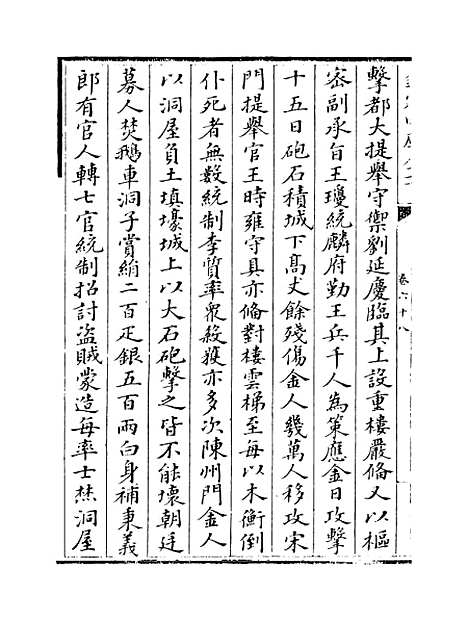 卷六十八
擊都大提舉守禦劉延慶臨其上設重樓嚴偹又以樞
宻副承旨王瓊統麟府勤王兵千人為策應金日攻擊
十五日砲石積城下髙丈餘殘傷金人幾萬人移攻宋
門提舉官王時雍守具亦偹對樓雲梯至每以木衝倒
仆死者無數統制李質率衆殺獲亦多次陳州門金人
以洞屋負土填壕城上以大石砲擊之皆不能壞朝廷
募人焚鵝車洞子賞絹二百疋銀五百兩白身補秉義
郎有官人轉七官統制招討盜賊蒙造每率士焚洞屋